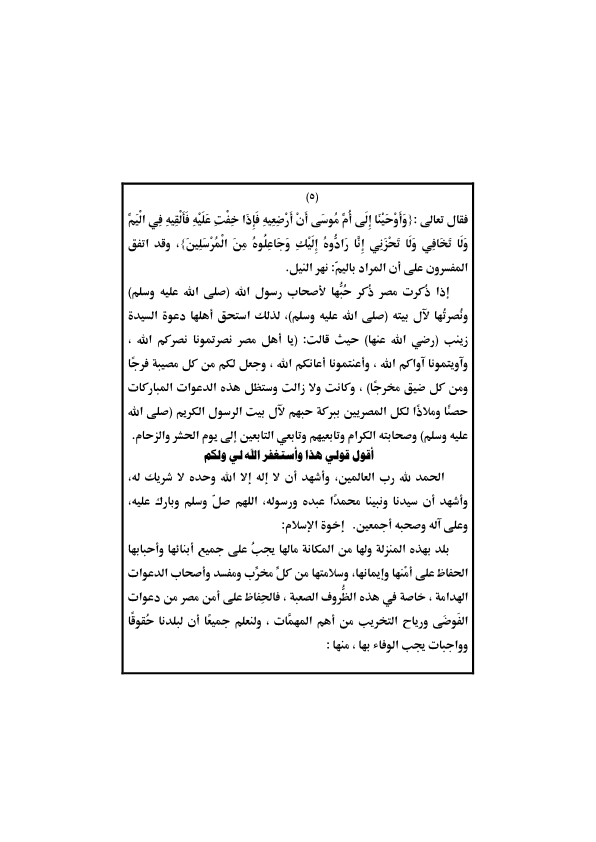 (٥)
فقال تعالى :{وَأَوْحَيْنَا إِلَى أُمِّ مُوسَى أَنْ أَرْضِعِيهِ فَإِذَا خِفْتِ عَلَيْهِ فَأَلْقِيهِ فِي الْيَمِّ
وَلَا تَخَافِي وَلَا تَحْزَنِي إِنَّا رَادُّوهُ إِلَيْكِ وَجَاعِلُوهُ مِنَ الْمُرْسَلِينَ}، وقد اتفق
المفسرون على أن المراد باليمّ: نهر النيل.
إذا ذُكرت مصر ذُكر حُبُّها لأصحاب رسول الله (صلى الله عليه وسلم)
ونُصرتُها لآل بيته (صلى الله عليه وسلم)، لذلك استحق أهلها دعوة السيدة
زينب (رضي الله عنها) حيث قالت: (يا أهل مصر نصرتمونا نصركم الله ،
وآويتمونا آواكم الله ، وأعنتمونا أعانكم الله ، وجعل لكم من كل مصيبة فرجًا
ومن كل ضيق مخرجًا) ، وكانت ولا زالت وستظل هذه الدعوات المباركات
حصنًا وملاذًا لكل المصريين ببركة حبهم لآل بيت الرسول الكريم (صلى الله
عليه وسلم) وصحابته الكرام وتابعيهم وتابعي التابعين إلى يوم الحشر والزحام.
أقول قولي هذا وأستغفر الله لي ولكم
الحمد لله رب العالمين، وأشهد أن لا إله إلا الله وحده لا شريك له،
وأشهد أن سيدنا ونبينا محمدًا عبده ورسوله، اللهم صلّ وسلم وبارك عليه،
وعلى آله وصحبه أجمعين. إخوة الإسلام:
بلد بهذه المنزلة ولها من المكانة مالها يجبُ على جميع أبنائها وأحبابها
الحفاظ على أمْنها وإيمانها، وسلامتها من كلِّ مخرِّب ومفسد وأصحاب الدعوات
الهدامة ، خاصة في هذه الظُّروف الصعبة ، فالحِفاظ على أمن مصر من دعوات
الفَوضَى ورياح التخريب من أهم المهمَّات ، ولنعلم جميعًا أن لبلدنا حُقوقًا
وواجبات يجب الوفاء بها ، منها :